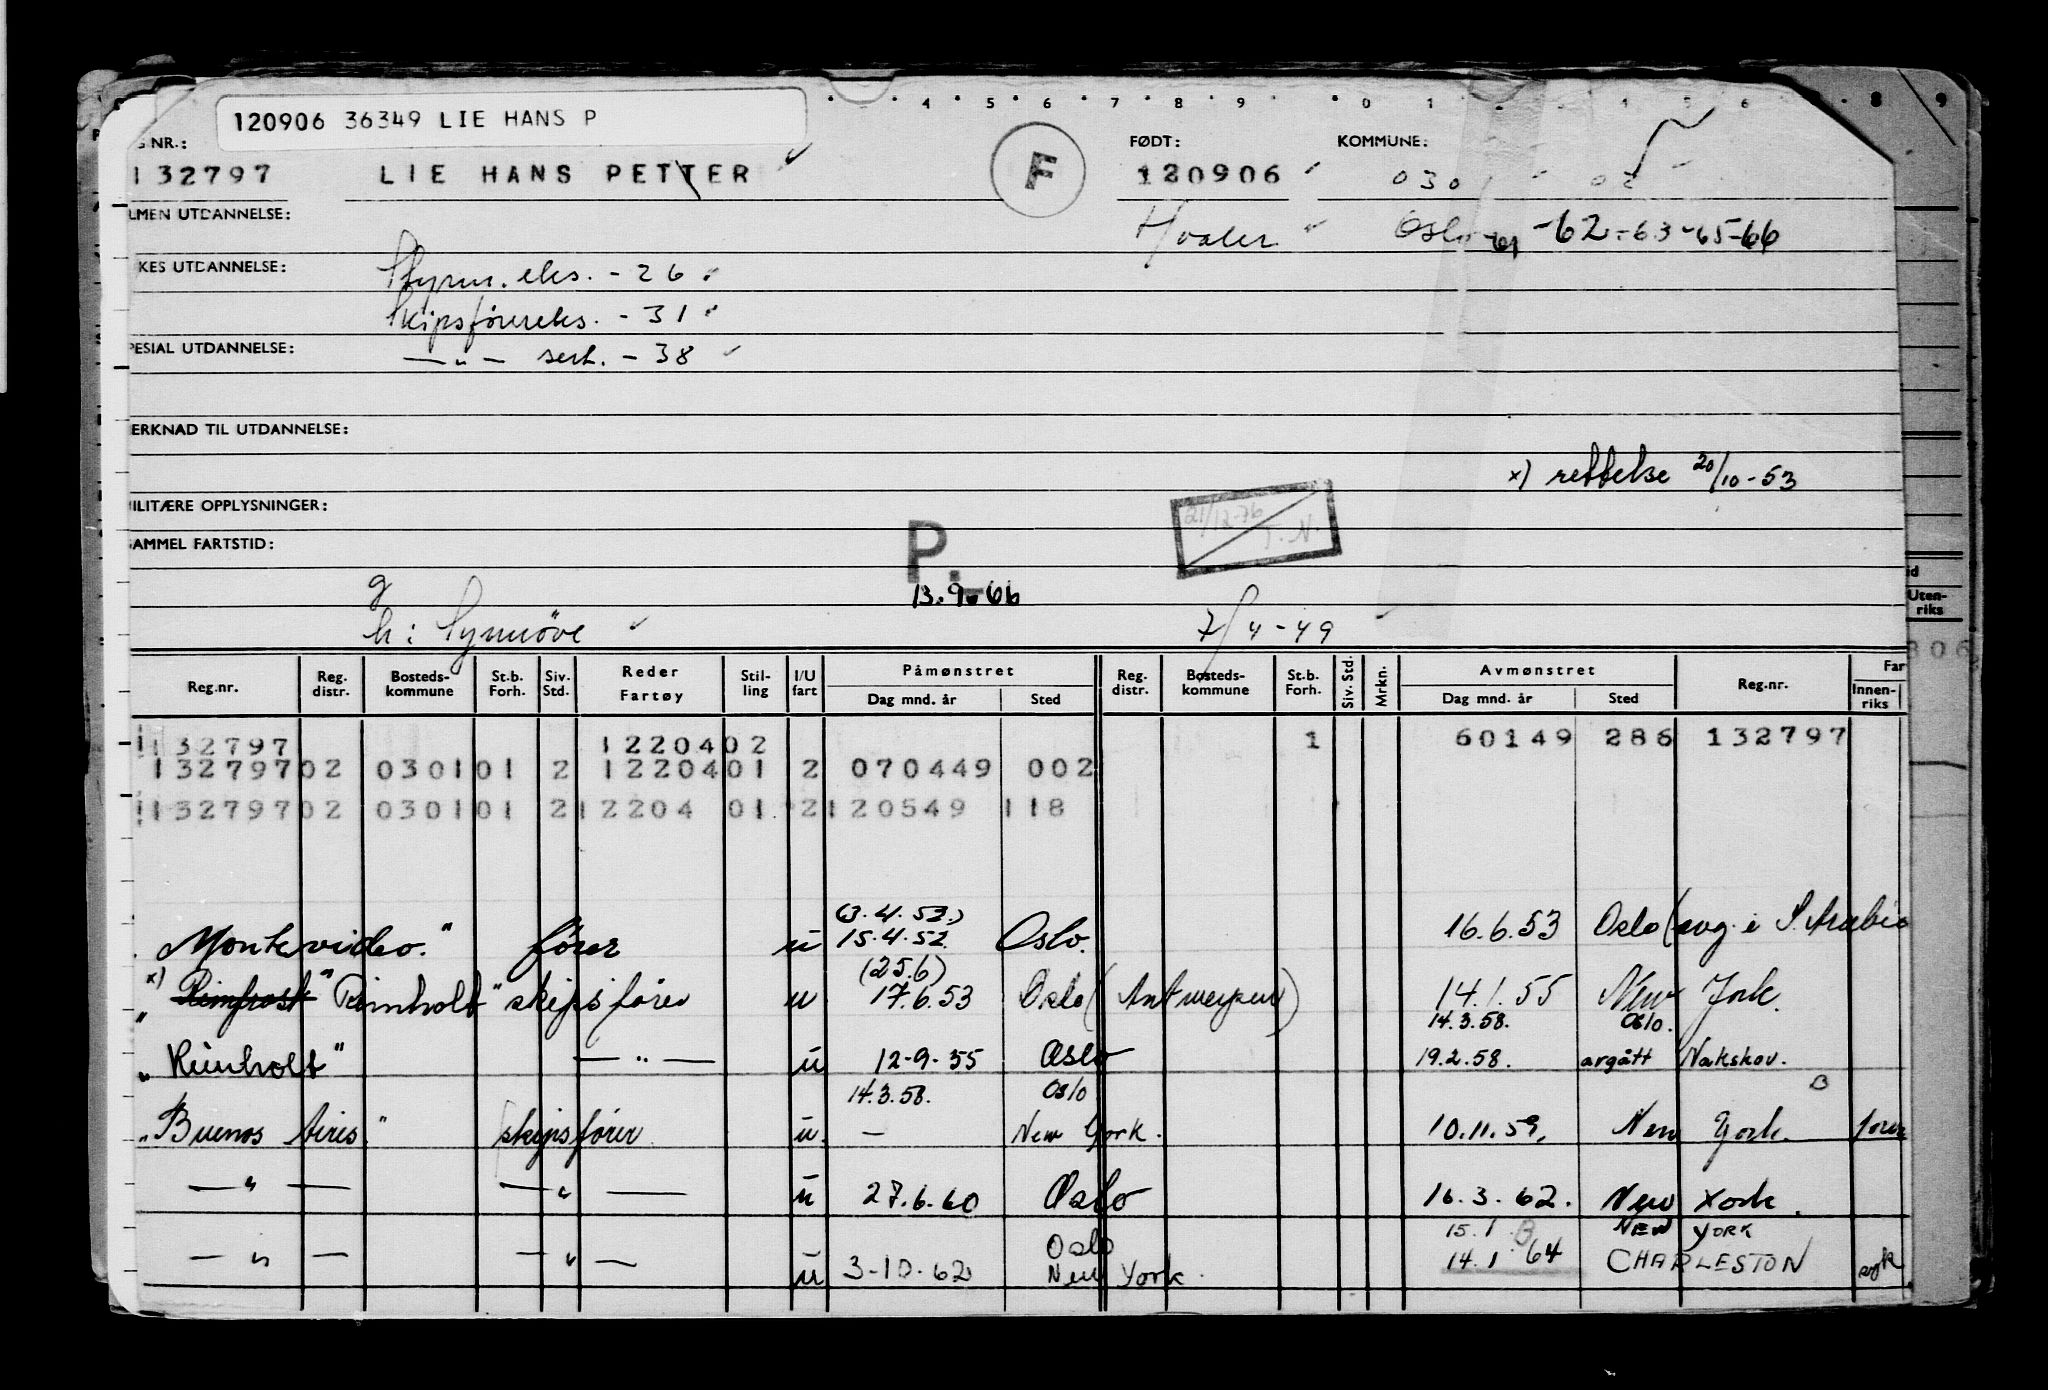 120906 36349 LIE HANS P
4 5 6 7 8 9 0 1 4 5 6 8 9
G NR.: FØDT: KOMMUNE:
132797 LIE HANS PETTER F 120906 030 02
LMEN UTDANNELSE: Hvaler Oslo -61 -62-63-65-66
KES UTDANNELSE: Styrm. eks. - 26
Skipsførereks. - 31
PESIAL UTDANNELSE: — " — sert. - 38
ERKNAD TIL UTDANNELSE:
x) rettelse 20/10-53
ILITÆRE OPPLYSNINGER:
21/12-76 T.N.
AMMEL FARTSTID: P.
g 13.9.66
h: Synnöve 7/4-49
Reg.nr. Reg. distr. Bosteds-kommune St.b. Forh. Siv. Std. Reder Fartøy Stil-ling I/U fart Påmønstret Dag mnd. år Sted Reg. distr. Bosteds-kommune St.b. Forh. Siv. Std. Mrkn. Avmønstret Dag mnd. år Sted Reg.nr. Far Innen-riks
id Uten-riks
306
132797 1220402 1 60149 286 132797
13279702 030101 2 1220401 2 070449 002
13279702 030101 2 12204 01 2 120549 118
(3.4.52.)
Montevideo." fører u 15.4.52. Oslo. 16.6.53 Oslo (avg. i S. Arabia
(25.6)
x) " Rimfrost" Rimholt" skipsfører u 17.6.53 Oslo (Antwerpen) 14.1.55 New York.
14.3.58. Oslo.
"Rimholt" — " — u 12-9-55 Oslo 19.2.58. avgått Nakskov.
14.3.58. Oslo
"Buenos Aires." skipsfører u. — New York. 10.11.59. New York. fører
— " — — " — u 27.6.60 Oslo 16.3.62. New York.
Oslo 15.1 NEW YORK
— " — — " — u 3-10-62 New York. 14.1.64 CHARLESTON